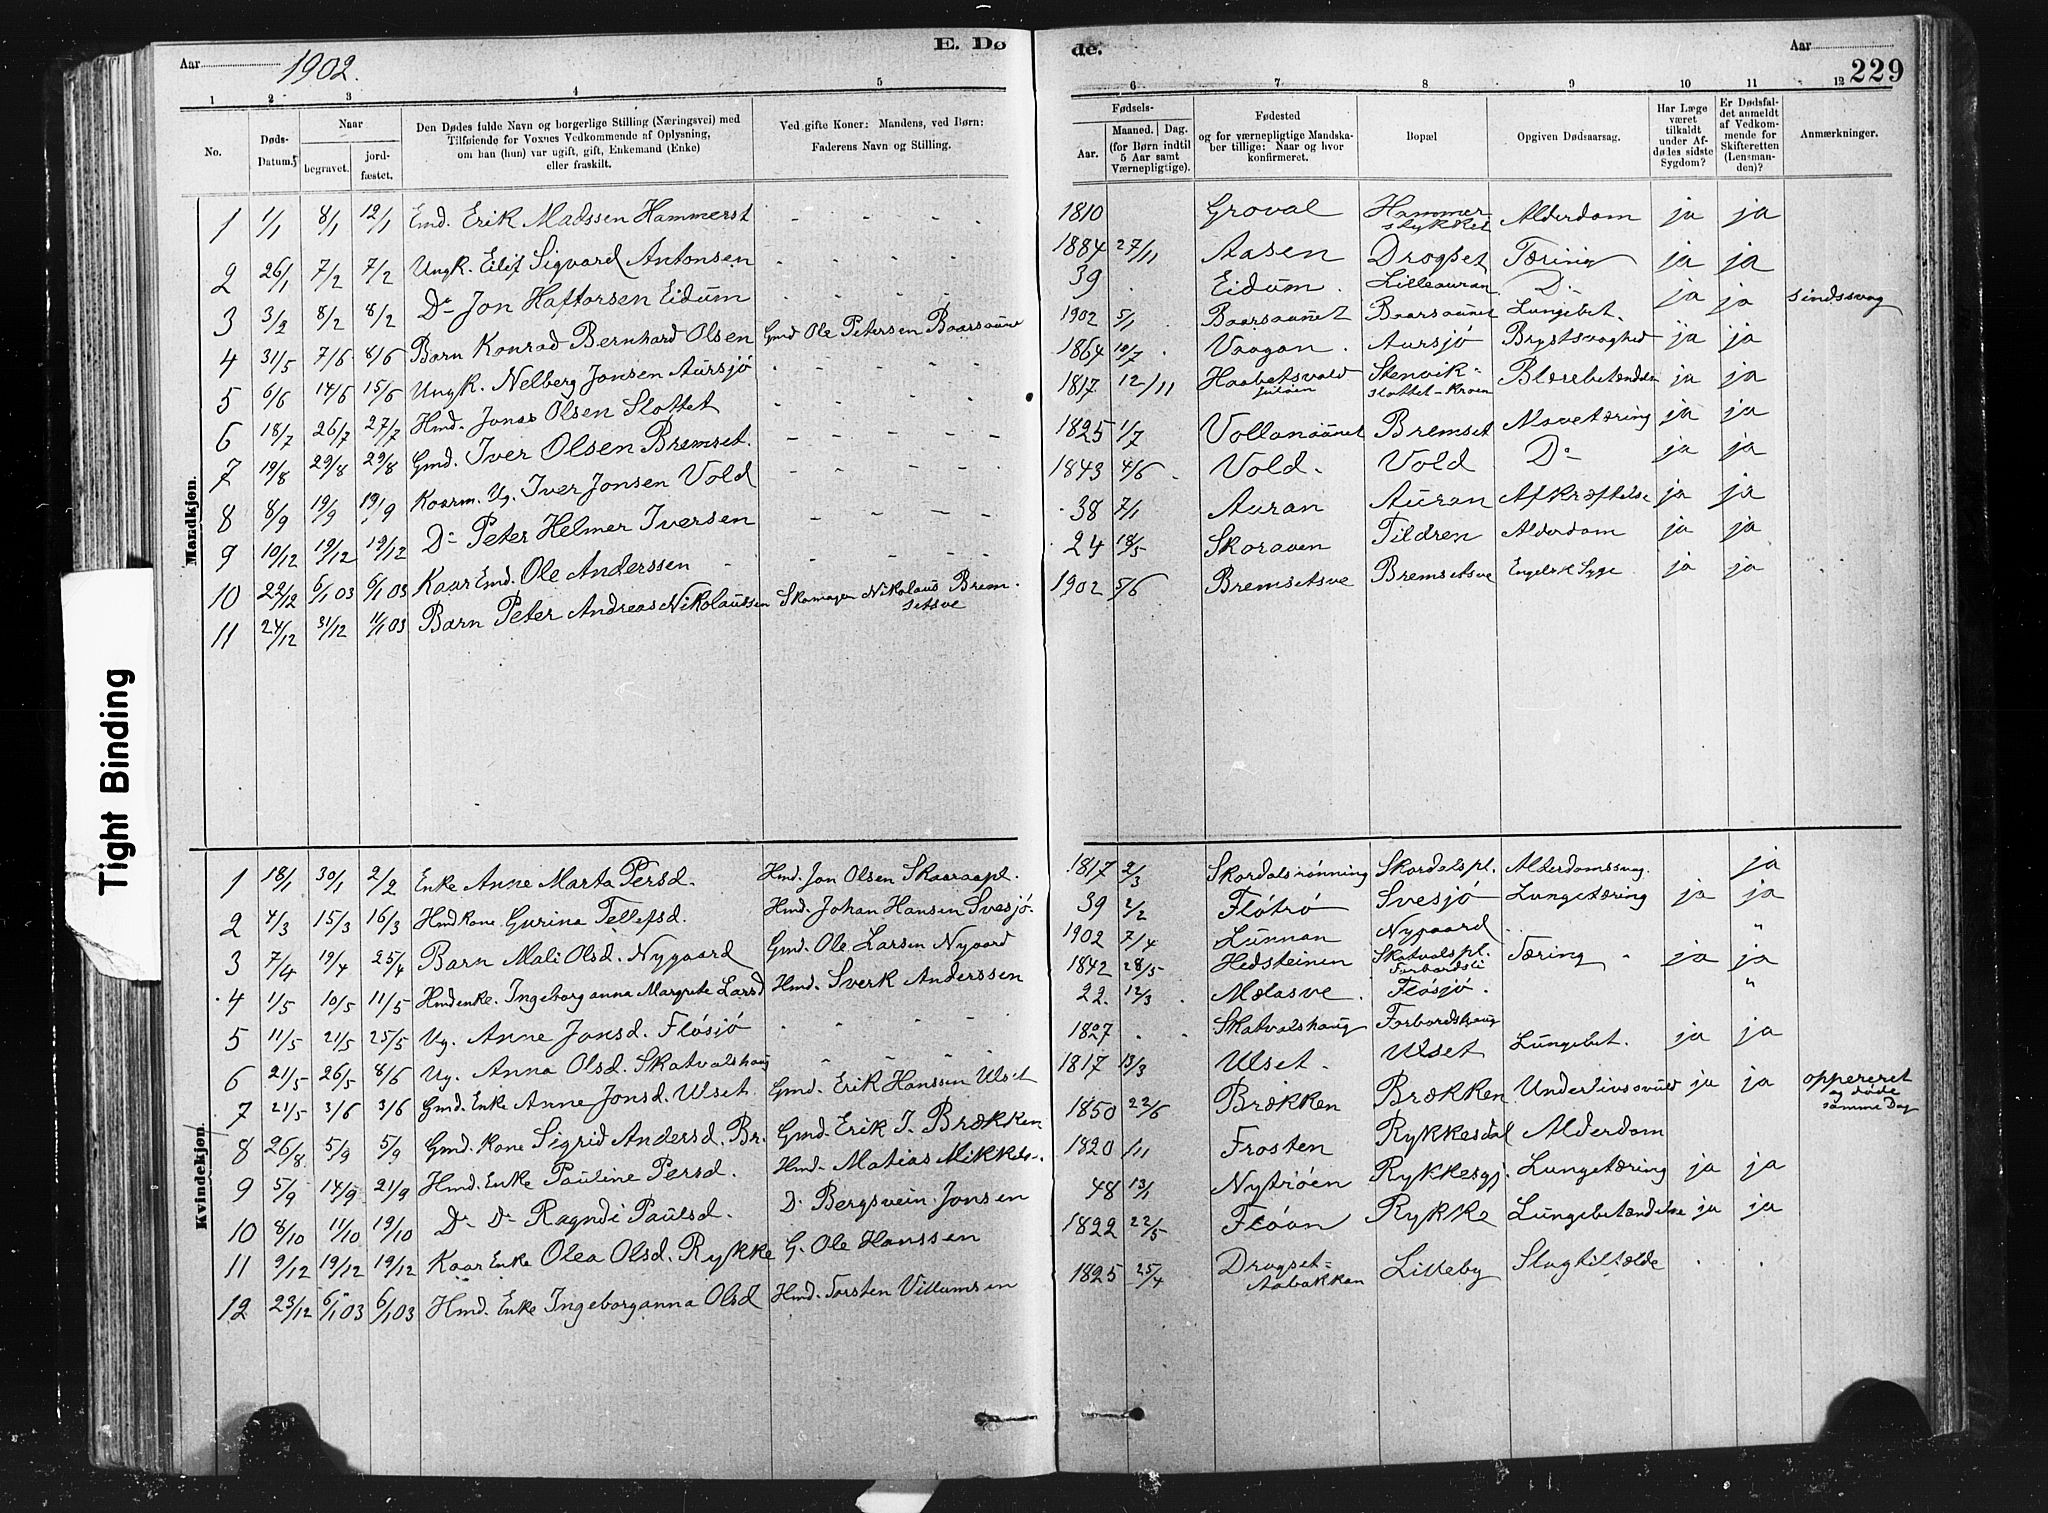 Aar 1902.
E. Dø
de.
Aar
229
1 2 3 4 5
6 7 8 9 10 11 12
No.
Døds-Datum.
Naar
begravet.
jordfæstet.
Den Dødes fulde Navn og borgerlige Stilling (Næringsvei) med
Tilføiende for Voxnes Vedkommende af Oplysning,
om han (hun) var ugift, gift, Enkemand (Enke)
eller fraskilt.
Ved gifte Koner: Mandens, ved Børn:
Faderens Navn og Stilling.
Fødsels-
Aar.
Maaned. Dag.
(for Børn indtil
5 Aar samt
Værnepligtige).
Fødested
og for værnepligtige Mandska-
ber tillige: Naar og hvor
konfirmeret.
Bopæl
Opgiven Dødsaarsag.
Har Læge
været
tilkaldt
under Af-
dødes sidste
Sygdom?
Er Dødsfal-
det anmeldt
af Vedkom-
mende for
Skifteretten
(Lensman-
den)?
Anmærkninger.
Mandkjøn.
1 1/1 8/1 12/1 Emd. Erik Madssen Hammerst - - - - 1810 Groval Hammerstykket Alderdom ja ja
2 26/1 7/2 7/2 Ungk. Eilif Sigvard Antonsen - - - - 1884 27/11 Aasen Drogset Tæring ja ja
3 3/2 8/2 8/2 Do Jon Haftorsen Eidum - - - - 39 Eidum Lilleauran Do ja ja sindssvag
4 31/5 7/6 8/6 Barn Konrad Bernhard Olsen Gmd Ole Petersen Baarsaune 1902 5/1 Baarsaunet Baarsaunet Lungebet. ja ja
5 6/6 14/6 15/6 Ungk. Nelberg Jonsen Aursjö - - - - 1864 10/7 Vaagan Aursjö Brystsvaghed ja ja
6 18/7 26/7 27/7 Hmd. Jonas Olsen Slottet - - - - 1817 12/11 Stenvik-slottet-Kroen ja ja
7 19/8 29/8 29/8 Gmd. Iver Olsen Bremset. - - - - 1825 1/7 Vollansaunet Bremset Mavetæring ja ja
8 8/9 19/9 19/9 Kaarm. Ug. Iver Jonsen Vold - - - - 1843 4/6 Vold. Vold Do ja ja
9 10/12 19/12 19/12 Do Peter Helmer Iversen - - - - 38 7/1 Auran Auran Afkræftelse ja ja
10 22/12 6/1 03 6/1 03 Kaar Emd. Ole Anderssen - - - - 24 18/5 Skoraven Tildren Alderdom ja ja
11 24/12 31/12 11/1 03 Barn Peter Andreas Nikolaussen Skomager Nikolaus Bremsetsve 1902 5/6 Bremsetsve Bremsetsve Engelsk Syge ja ja
Tight Binding
Kvindekjøn.
1 18/1 30/1 2/2 Enke Anne Marta Persd. Hmd. Jon Olsen Skaaraapl. 1817 2/3 Skordalsrønning Skordalspl. Alderdomssvag. ja
2 4/3 15/3 16/3 Hmd kone Gurina Tellefsd. Hmd. Johan Hansen Svesjö. 39 2/2 Flötrö Svesjö Lungetæring ja ja
3 7/4 19/4 25/4 Barn Mali Olsd. Nygaard Gmd. Ole Larsen Nygaard 1902 7/4 Lunnan Nygaard "
4 1/5 10/5 11/5 Hmdenke. Ingeborganna Margrete Larsd Hmd. Sverk Anderssen 1842 28/5 Hedsteinen Skatvalspl. Forbordsli Tæring ja ja
5 11/5 21/5 25/5 Ug. Anne Jonsd. Flösjö - - - - 22. 12/3 Mælasve. Flösjö. "
6 21/5 26/5 8/6 Ug. Anna Olsd. Skatvalshaug - - - - 1827 Skatvalshaug Forbordshaug Lungebet. ja ja
7 21/5 3/6 3/6 Gmd. Enke Anne Jonsd. Ulset Gmd. Erik Hanssen Ulset 1817 13/3 Ulset. Ulset
8 26/8 5/9 5/9 Gmd. Kone Sigrid Andersd. Br. Gmd. Erik J. Brækken 1850 22/6 Brækken Brækken Underlivssvulst ja ja oppereret og døde samme Dag
9 5/9 14/9 21/9 Hmd. Enke Pauline Persd. Hmd. Matias Mikkels-. 1820 1/11 Frosten Rykkesdal Alderdom
10 8/10 11/10 19/10 Do Do Ragndi Paulsd. D. Bergsvein Jonsen 48 13/1 Nytröen Rykkesgj. Lungetæring ja ja
11 9/12 19/12 19/12 Kaar Enke Olea Olsd. Rykke G. Ole Hanssen 1822 22/5 Flöan Rykke Lungebetændelse ja ja
12 23/12 6/1 03 6/1 03 Hmd. Enke Ingeborganna Olsd Hmd. Torsten Villumsen 1825 25/4 Drogset-Aabakkan Lilleby Slagtilfælde